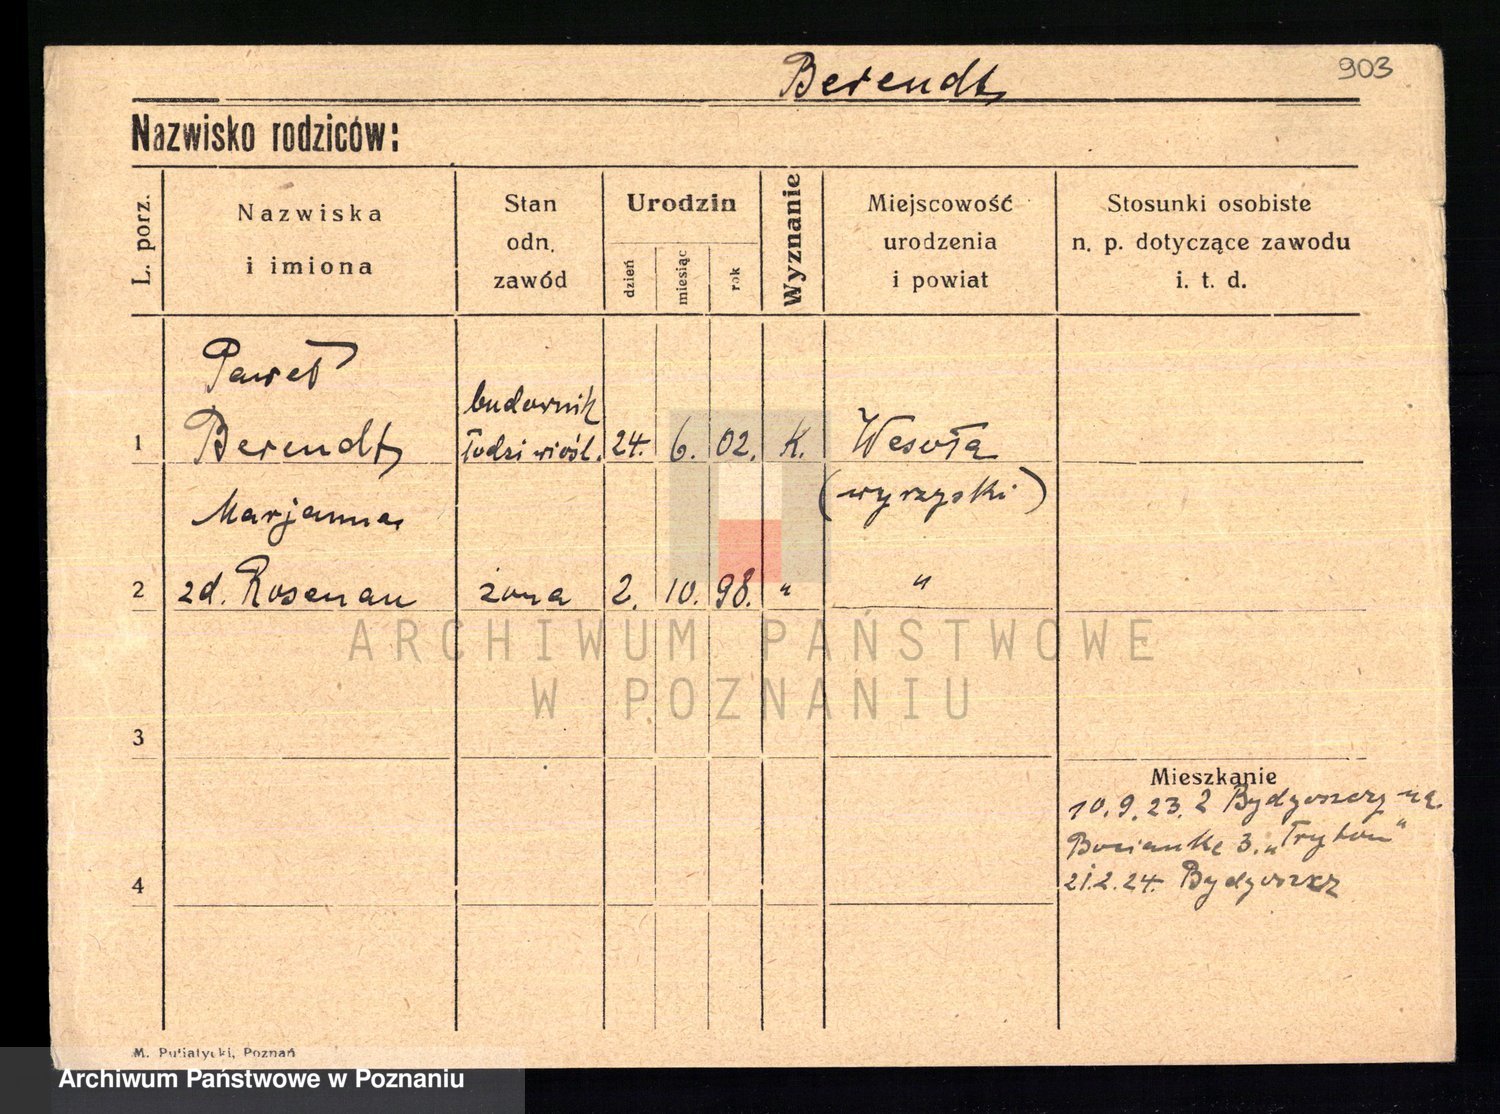 Berendt
903
Nazwisko rodziców:
L. porz.
Nazwiska
i imiona
Stan
odn.
zawód
Urodzin
dzień
miesiąc
rok
Wyznanie
Miejscowość
urodzenia
i powiat
Stosunki osobiste
n. p. dotyczące zawodu
i. t. d.
Paweł
budownik
1 Berendt łodzi wiośl. 24. 6. 02. K. Wesoła
(wyrzyski)
Marjanna
2 zd. Rosenau żona 2. 10. 98. " "
ARCHIWUM PAŃSTWOWE
W POZNANIU
3
Mieszkanie
10. 9. 23. z Bydgoszczy na
Bocianke 3. „Tryton"
4 21.2.24. Bydgoszcz
M. Putiatycki, Poznań
Archiwum Państwowe w Poznaniu